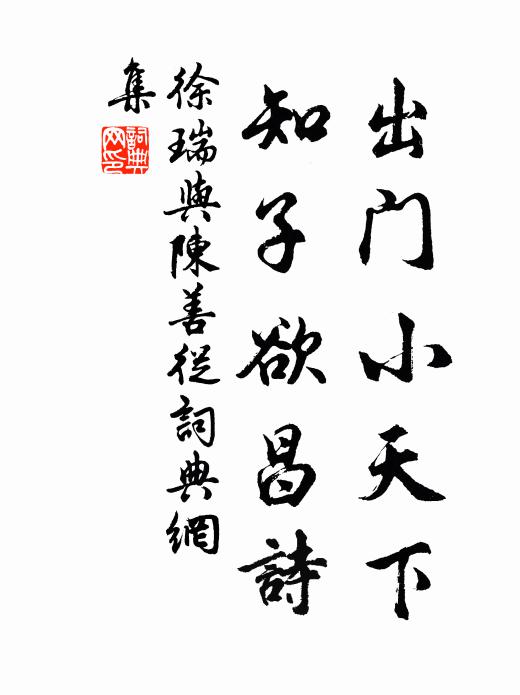 出门小天下
知子欲昌詩
徐瑞與陳善從詞典網
集
詞典
网印